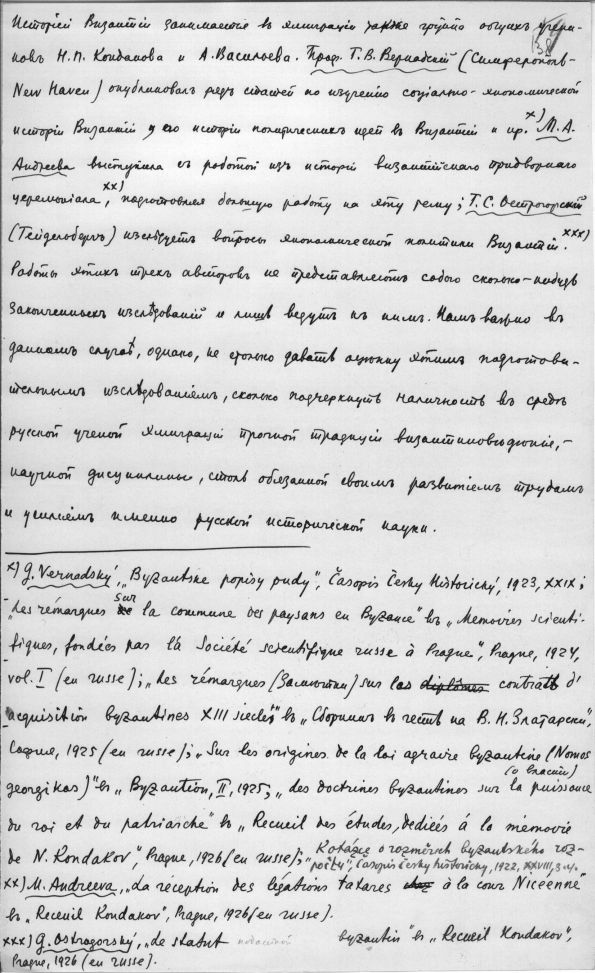 38
Исторіей Византіи занимается в эмиграціи также группа общих учени-
ковъ Н.П. Кондакова и А. Васильева. Проф. Г.В. Вернадскій (Симферополь-
New Haven) опубликовалъ рядъ статей по изученію соціально-экономической
исторіи Византіи и по исторіи политическихъ идей въ Византіи и пр. x) М.А.
Андреева выступила съ работой изъ исторіи византійскаго придворнаго
церемоніала xx), подготовляя большую работу на эту тему; Г.С. Острогорскій
(Гейдельбергъ) изслѣдуетъ вопросы экономической политики Византіи. xxx)
Работы этихъ трехъ авторовъ не представляютъ собою сколько-нибудь
законченныхъ изслѣдованій и лишь ведутъ къ нимъ. Намъ важно въ
данномъ случаѣ, однако, не столько давать оцѣнку этимъ подготови-
тельнымъ изслѣдованіемъ, сколько подчеркнуть наличность въ средѣ
русской ученой эмиграціи прочной традиціи византиновѣдѣнія, -
научной дисциплины, столь обязанной своимъ развитіемъ трудамъ
и усиліямъ именно русской исторической науки.
x) G. Vernadský, „Byzantské popisy pudy", Časopis Česky Historický, 1923, XXIX;
„Les rémarques sur la commune des paysans en Byzance" въ „Memoires scienti-
fiques, fondées par la Société scientifique russe à Prague", Prague, 1924,
vol. I (en russe); „Les rémarques (Замѣтки) sur les diplômes contrats d'
acquisition byzantines XIII siecles" въ „Сборникъ въ честь на В.Н. Златарски",
София, 1925 (en russe); „Sur les origines de la loi agraire byzantine (Nomos
georgikos)" въ „Byzantion, II, 1925; „des doctrines byzantines sur la puissance (о власти)
du roi et du patriarche" въ „Recueil des études, dédiées à la mémoire
de N. Kondakov", Prague, 1926 (en russe); „Kotázce o rozměrech byzantského roz-
počtu", Časopis Česky historický, 1922, XXVIII, 3-4.
xx) M. Andreeva, „La réception des légations tatares à la cour Niceenne"
въ „Receuil Kondakov", Prague, 1926 (en russe).
xxx) G. Ostrogorský, „de statut податной byzantin" въ „Recueil Kondakov",
Prague, 1926 (en russe).